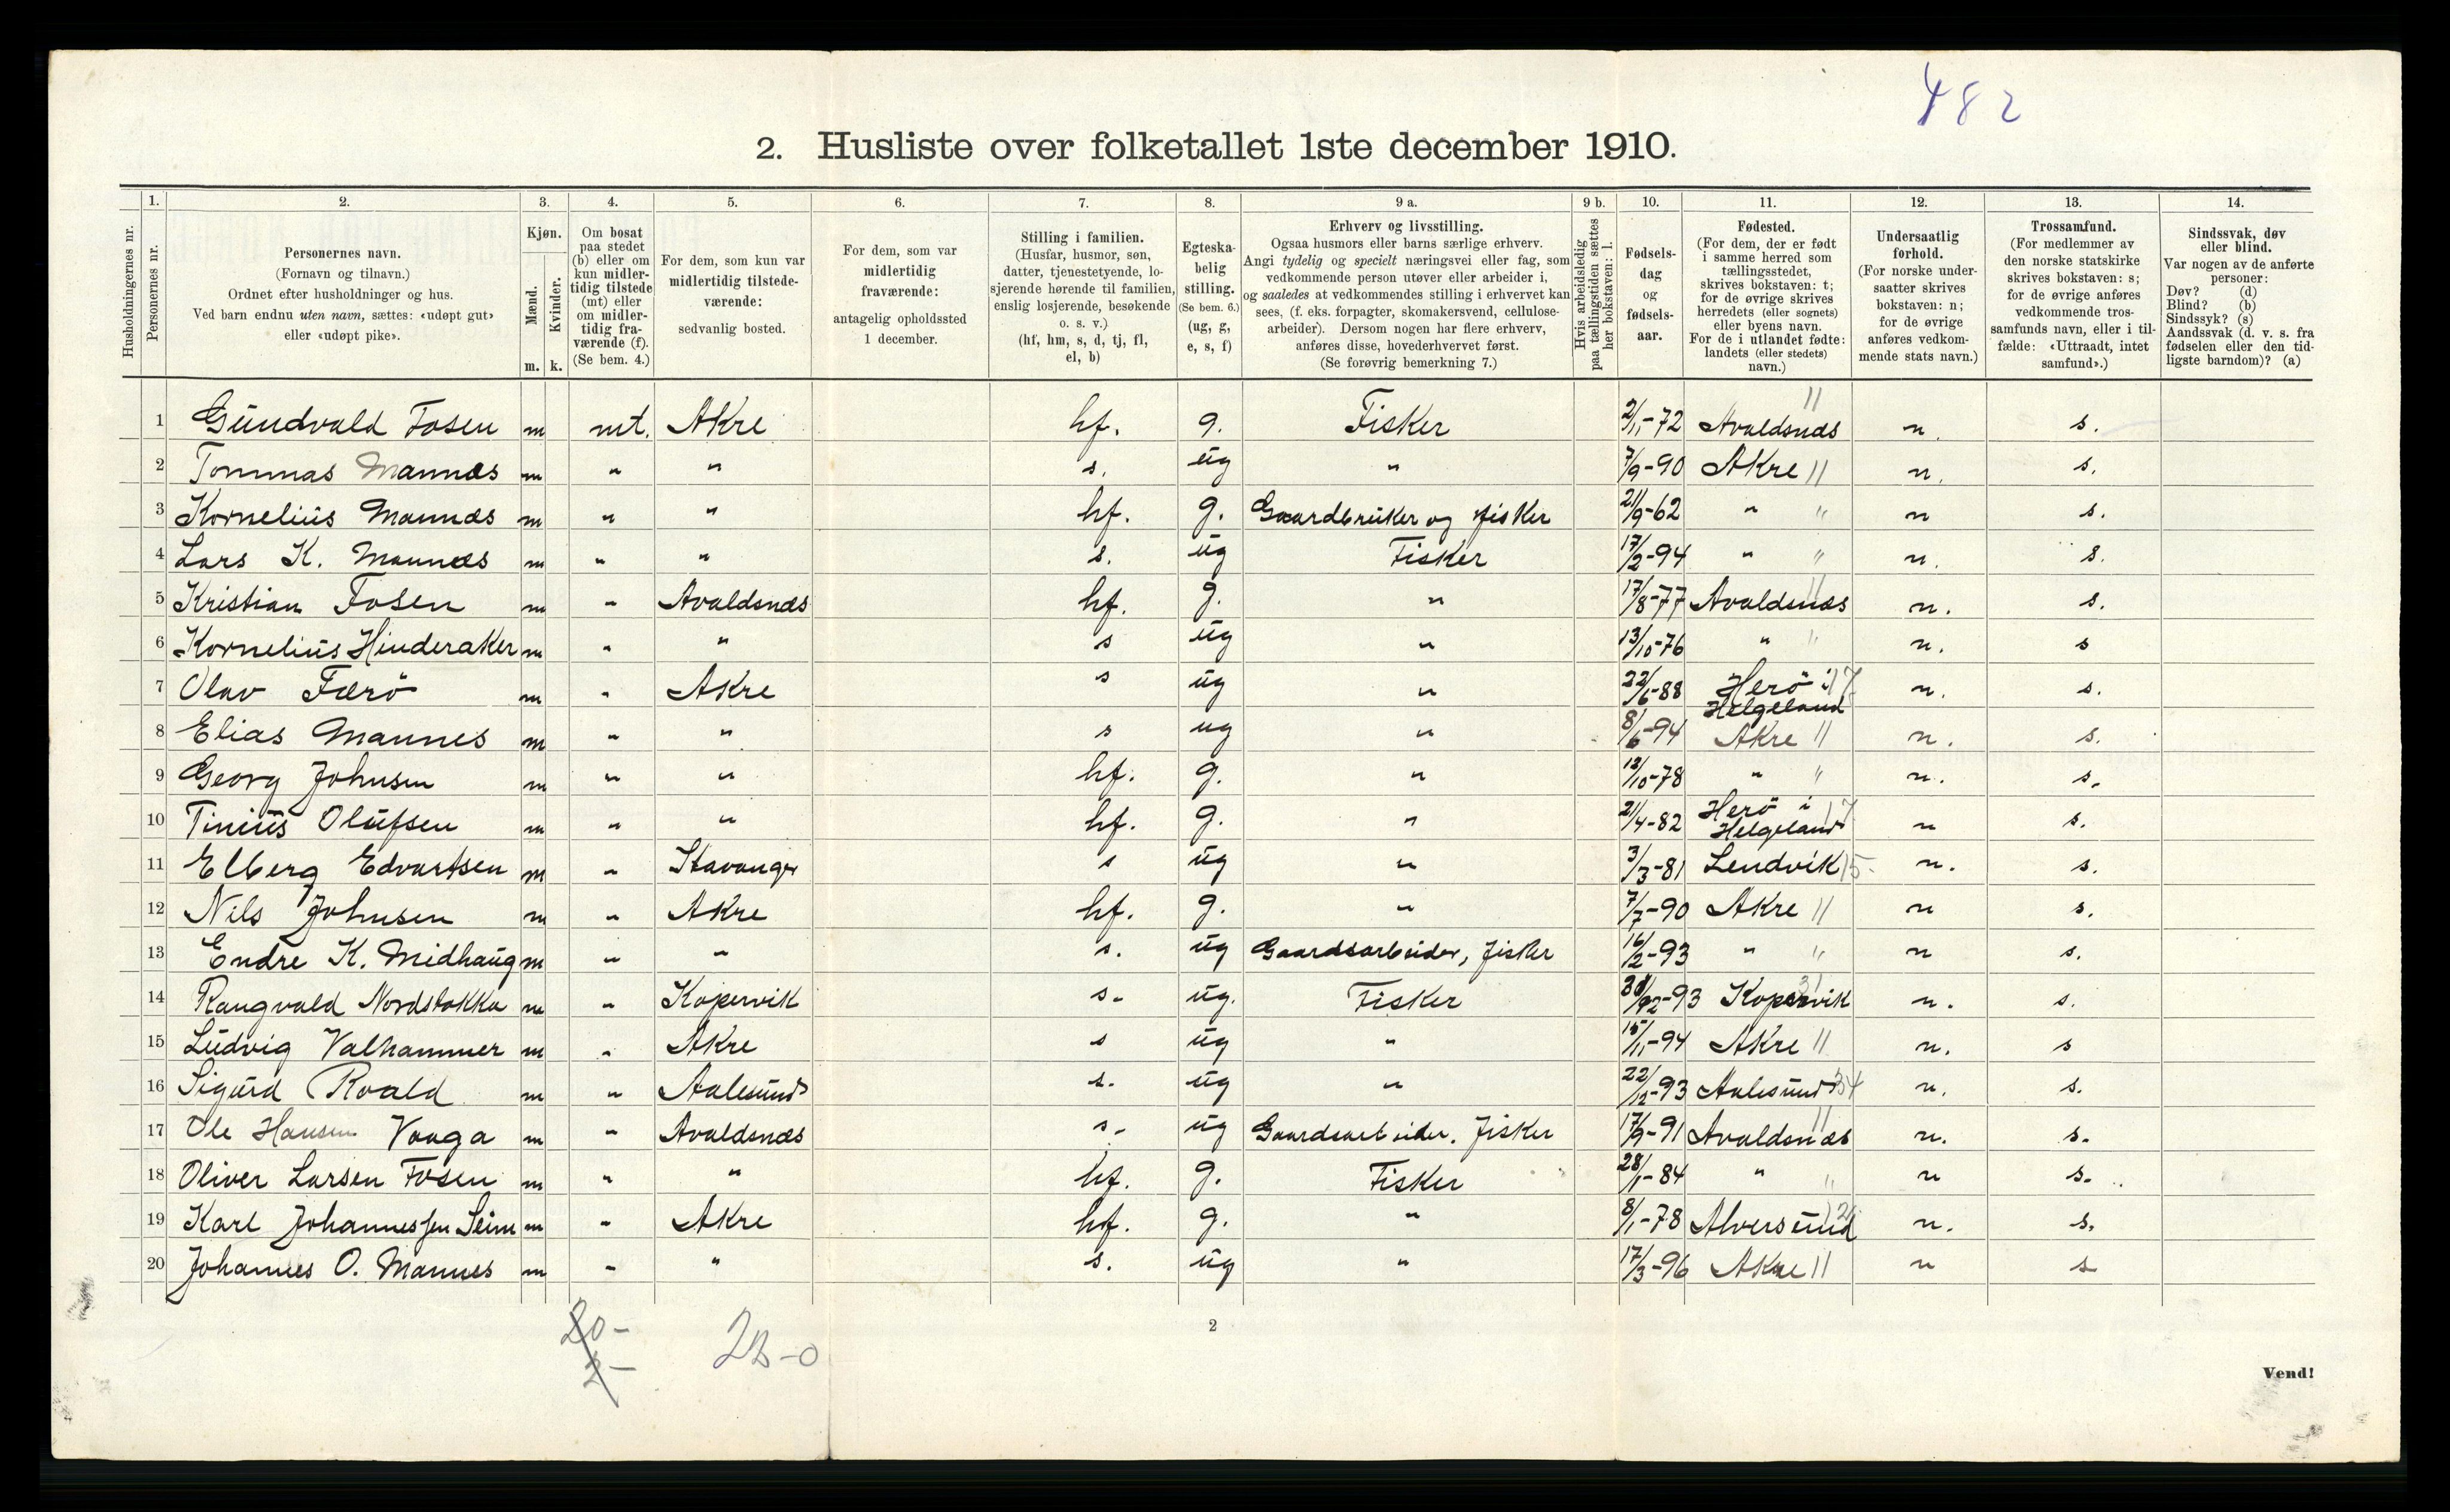 482
2. Husliste over folketallet 1ste december 1910.
Husholdningernes nr.
1. Personernes nr.
2. Personernes navn. (Fornavn og tilnavn.) Ordnet efter husholdninger og hus. Ved barn endnu uten navn, sættes: «udøpt gut» eller «udøpt pike».
3. Kjøn. Mænd. m. Kvinder. k.
4. Om bosat paa stedet (b) eller om kun midlertidig tilstede (mt) eller om midlertidig fraværende (f). (Se bem. 4.)
5. For dem, som kun var midlertidig tilstedeværende: sedvanlig bosted.
6. For dem, som var midlertidig fraværende: antagelig opholdssted 1 december.
7. Stilling i familien. (Husfar, husmor, søn, datter, tjenestetyende, losjerende hørende til familien, enslig losjerende, besøkende o. s. v.) (hf, hm, s, d, tj, fl, el, b)
8. Egteskabelig stilling. (Se bem. 6.) (ug, g, e, s, f)
9 a. Erhverv og livsstilling. Ogsaa husmors eller barns særlige erhverv. Angi tydelig og specielt næringsvei eller fag, som vedkommende person utøver eller arbeider i, og saaledes at vedkommendes stilling i erhvervet kan sees, (f. eks. forpagter, skomakersvend, cellulosearbeider). Dersom nogen har flere erhverv, anføres disse, hovederhvervet først. (Se forøvrig bemerkning 7.)
9 b. Hvis arbeidsledig paa tællingstiden sættes her bokstaven: l.
10. Fødselsdag og fødselsaar.
11. Fødested. (For dem, der er født i samme herred som tællingsstedet, skrives bokstaven: t; for de øvrige skrives herredets (eller sognets) eller byens navn. For de i utlandet fødte: landets (eller stedets) navn.)
12. Undersaatlig forhold. (For norske undersaatter skrives bokstaven: n; for de øvrige anføres vedkommende stats navn.)
13. Trossamfund. (For medlemmer av den norske statskirke skrives bokstaven: s; for de øvrige anføres vedkommende trossamfunds navn, eller i tilfælde: «Uttraadt, intet samfund».)
14. Sindssvak, døv eller blind. Var nogen av de anførte personer: Døv? (d) Blind? (b) Sindssyk? (s) Aandssvak (d. v. s. fra fødselen eller den tidligste barndom)? (a)
1 Gundvald Fosen m mt. Akre hf. g. Fisker 2/11-72 Avaldsnæs 11 n. s.
2 Tommas Mannæs m " " s. ug " 7/9-90 Akre 11 n. s.
3 Kornelius Mannæs m " " hf. g. Gaardbruker og fisker 21/9-62 " " n s.
4 Lars K. Mannæs m " " s. ug Fisker 17/2-94 " " n. s.
5 Kristian Fosen m " Avaldsnæs hf. g. " 17/8-77 Avaldsnæs 11 n. s.
6 Kornelius Hinderaker m " " s ug " 13/10-76 " " n. s
7 Olav Færö m " Akre s ug " 22/6-88 Herö i Helgeland 17 n. s.
8 Elias Mannes m " " s ug " 8/6-94 Akre 11 n. s.
9 Georg Johnsen m " " hf. g. " 12/10-78 " " n. s.
10 Tinius Olufsen m " " hf. g. " 21/4-82 Herö i Helgeland 17 n s.
11 Elberg Edvartsen m " Stavanger s ug " 3/3-81 Lendvik 15 n. s.
12 Nils Johnsen m " Akre hf. g. " 7/7-90 Akre 11 n s.
13 Endre K. Midhaug m " " s. ug Gaardsarbeider, fisker 16/2-93 " " n s.
14 Rangvald Nordstokka m " Kopervik s. ug. Fisker Kopervik n. s.
15 Ludvig Valhammer m " Akre s ug " 15/11-94 Akre 11 n. s
16 Sigurd Roald m " Aalesund s. ug " 22/12-93 Aalesund 34 n. s.
17 Ole Hansen Vaaga m " Avaldsnæs s. ug Gaardsarbeider. Fisker 17/9-91 Avaldsnæs 11 n. s.
18 Oliver Larsen Fosen m " " hf. g. Fisker 28/1-84 " " n s.
19 Karl Johannessen Seim m " Akre hf. g. " 8/1-78 Alversund n. s.
20 Johannes O. Mannes m " " s. ug " 17/3-96 Akre 11 n s
20-
2-
2B-0
2
Vend!